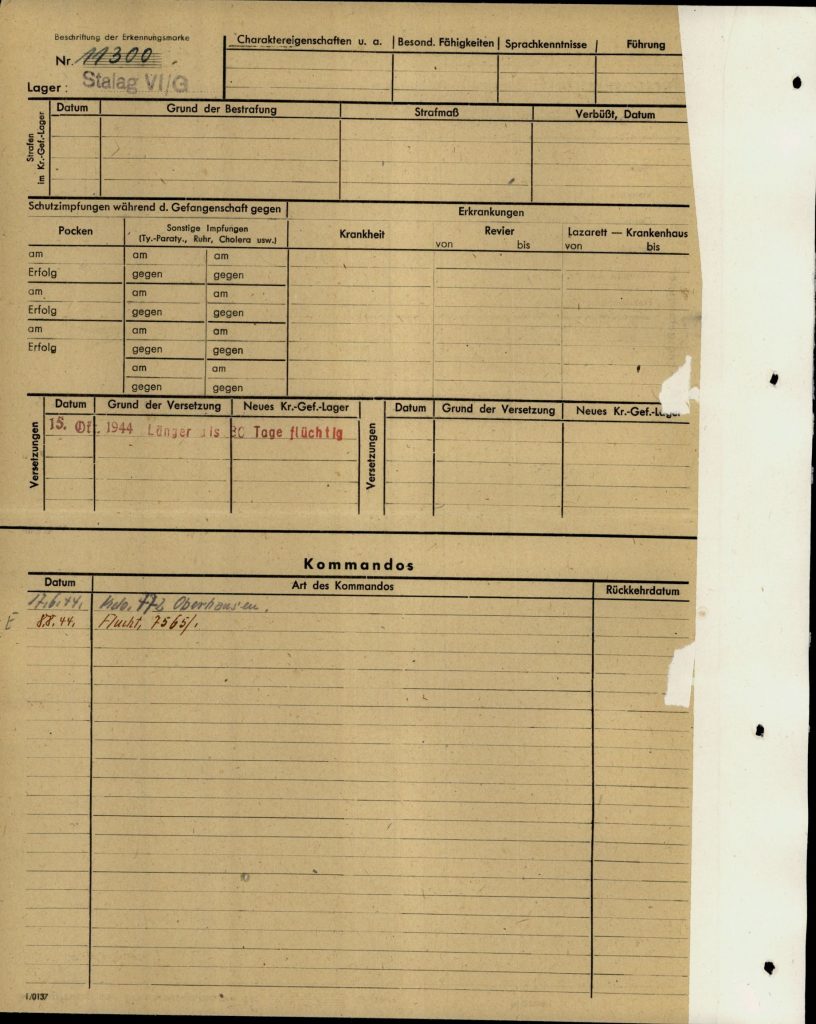 Beschriftung der Erkennungsmarke
Nr. 11300
Lager: Stalag VI/G
Charaktereigenschaften u. a. Besond. Fähigkeiten Sprachkenntnisse Führung
Strafen im Kr.-Gef.-Lager
Datum Grund der Bestrafung Strafmaß Verbüßt, Datum
Schutzimpfungen während d. Gefangenschaft gegen
Erkrankungen
Pocken
Sonstige Impfungen
(Ty.-Paraty., Ruhr, Cholera usw.)
Krankheit
Revier
von bis
Lazarett — Krankenhaus
von bis
am am am
Erfolg gegen gegen
am am am
Erfolg gegen gegen
am am am
Erfolg gegen gegen
am am
gegen gegen
Versetzungen
Datum Grund der Versetzung Neues Kr.-Gef.-Lager
15. Okt. 1944 Länger als 30 Tage flüchtig
Versetzungen
Datum Grund der Versetzung Neues Kr.-Gef.-Lager
Kommandos
Datum Art des Kommandos Rückkehrdatum
17.6.44. Kdo. 772 Oberhausen.
8.8.44. Flucht, 7565/.
I/0137